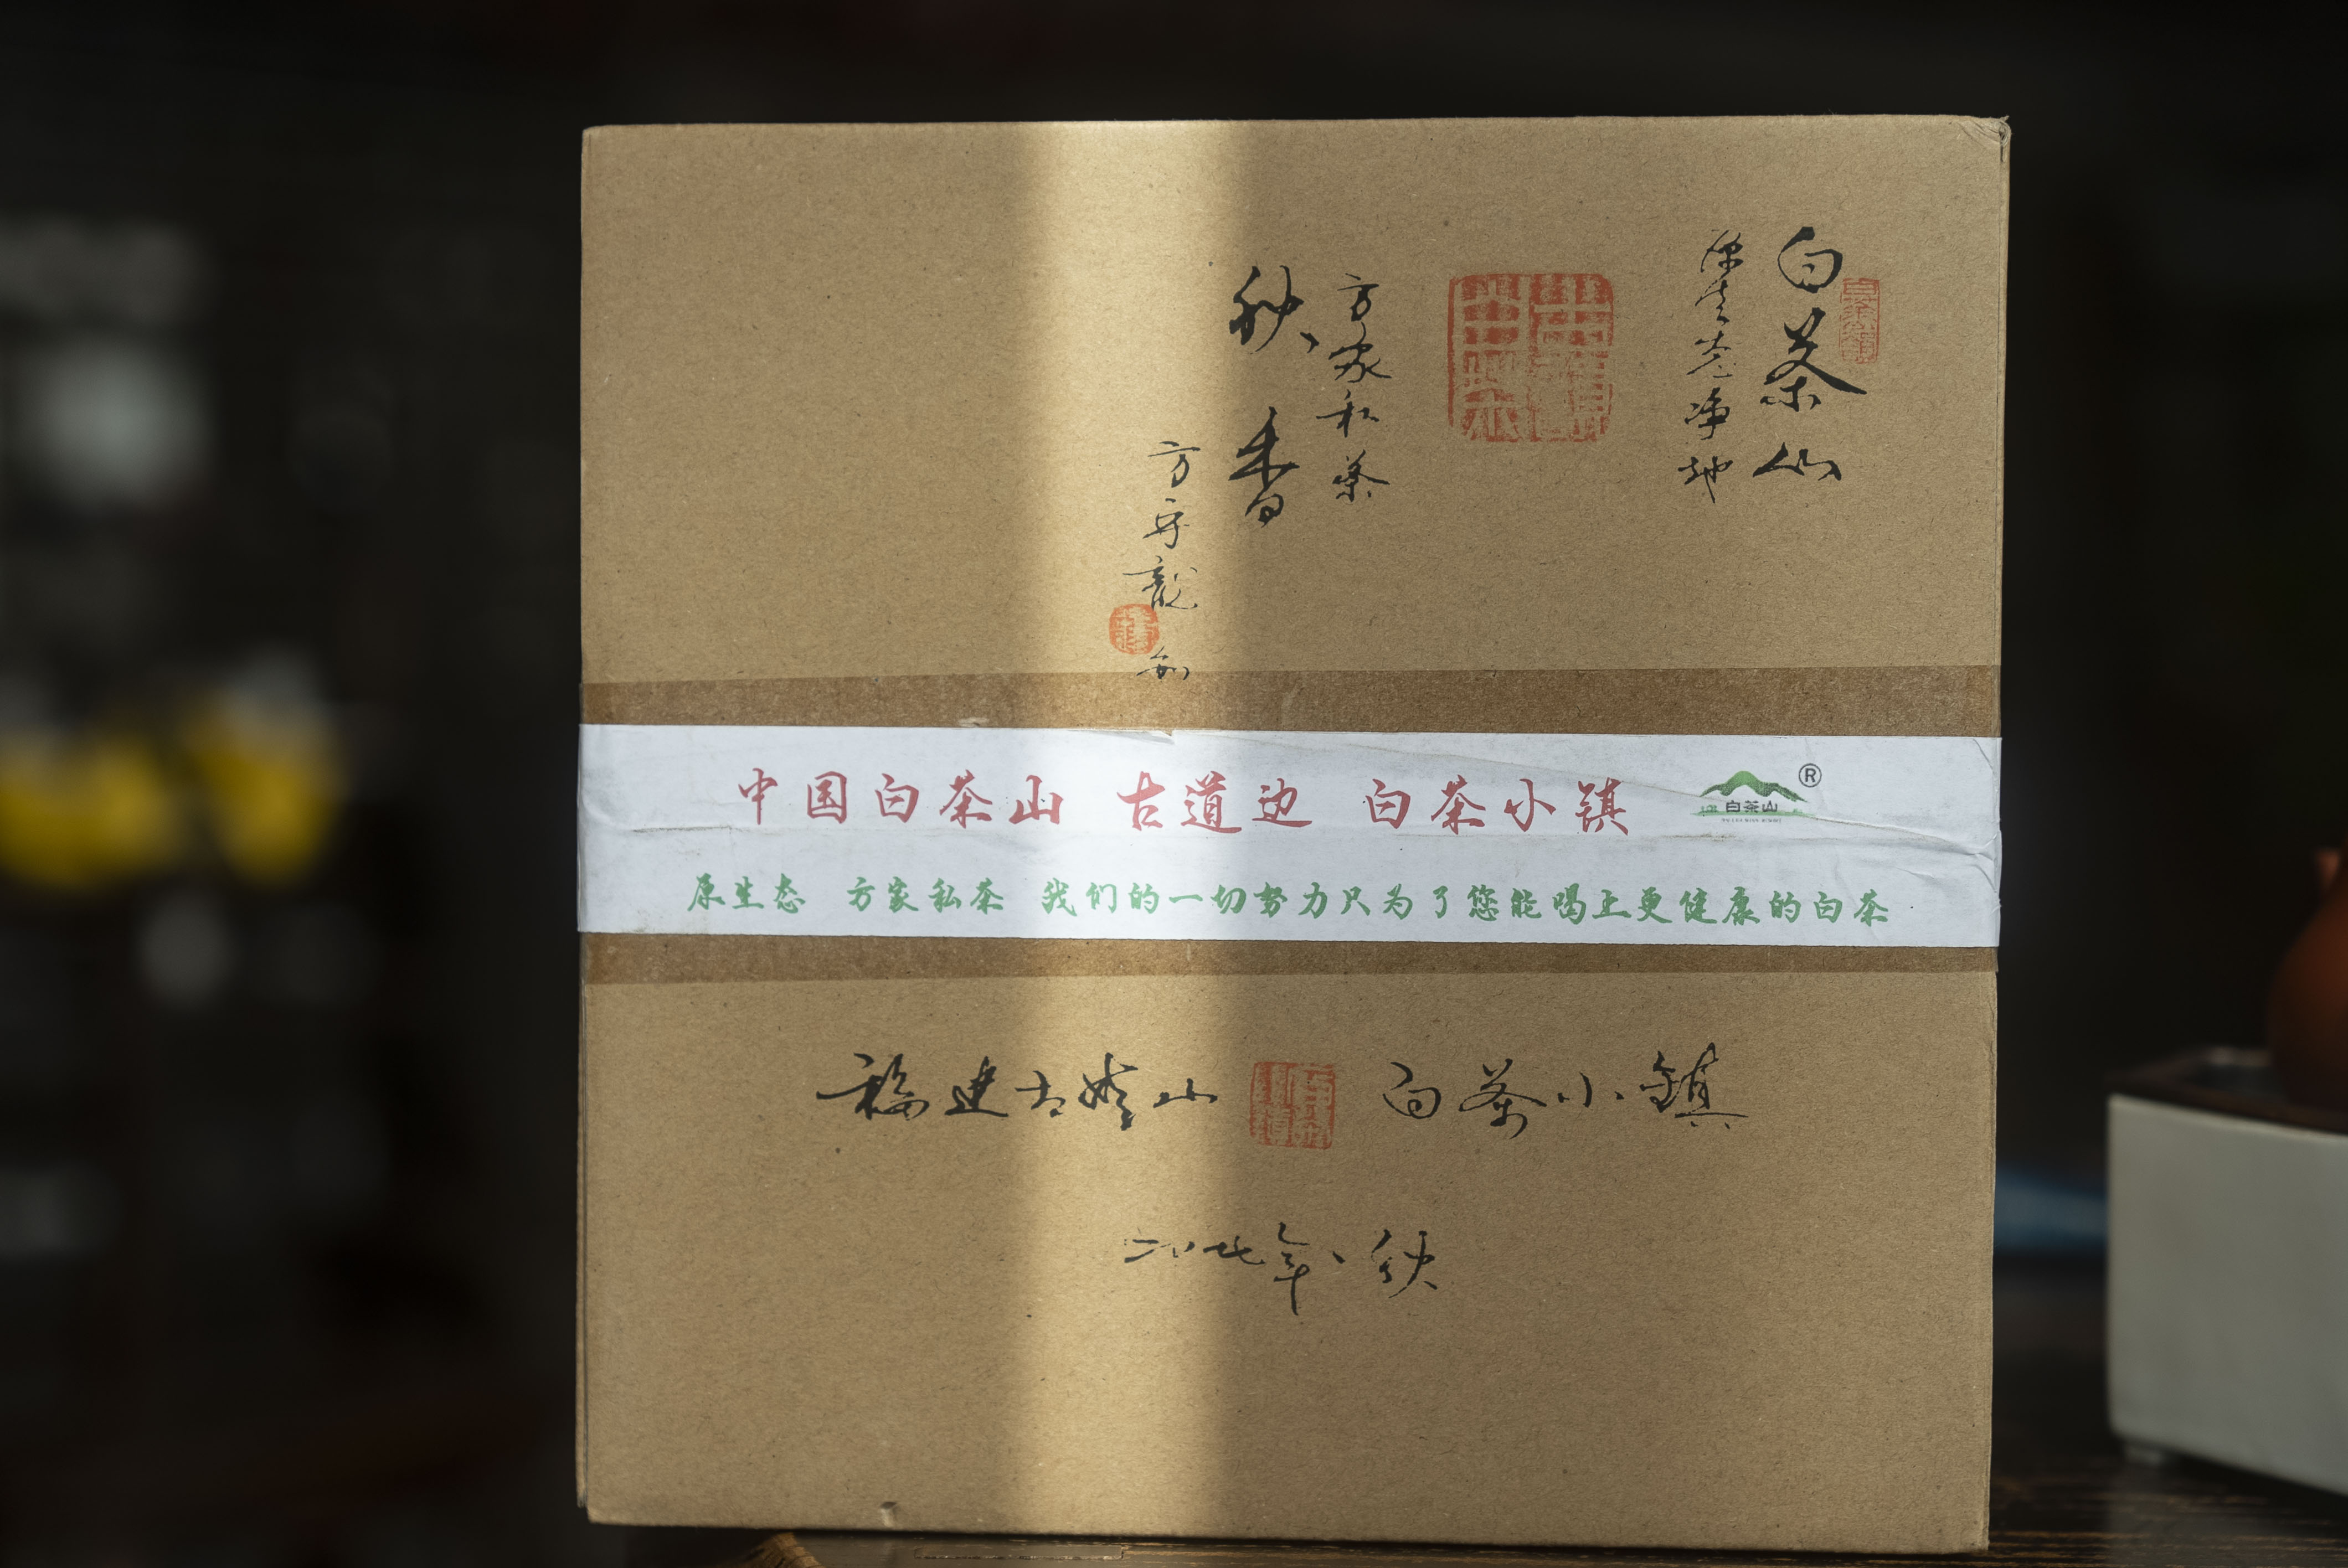 白茶山
生态净地
方家私茶
秋香
方守龍制
中国白茶山 古道边 白茶小镇 ®
白茶山
原生态 方家私茶 我们的一切努力只为了您能喝上更健康的白茶
福建太姥山 白茶小鎮
二〇一七年、秋